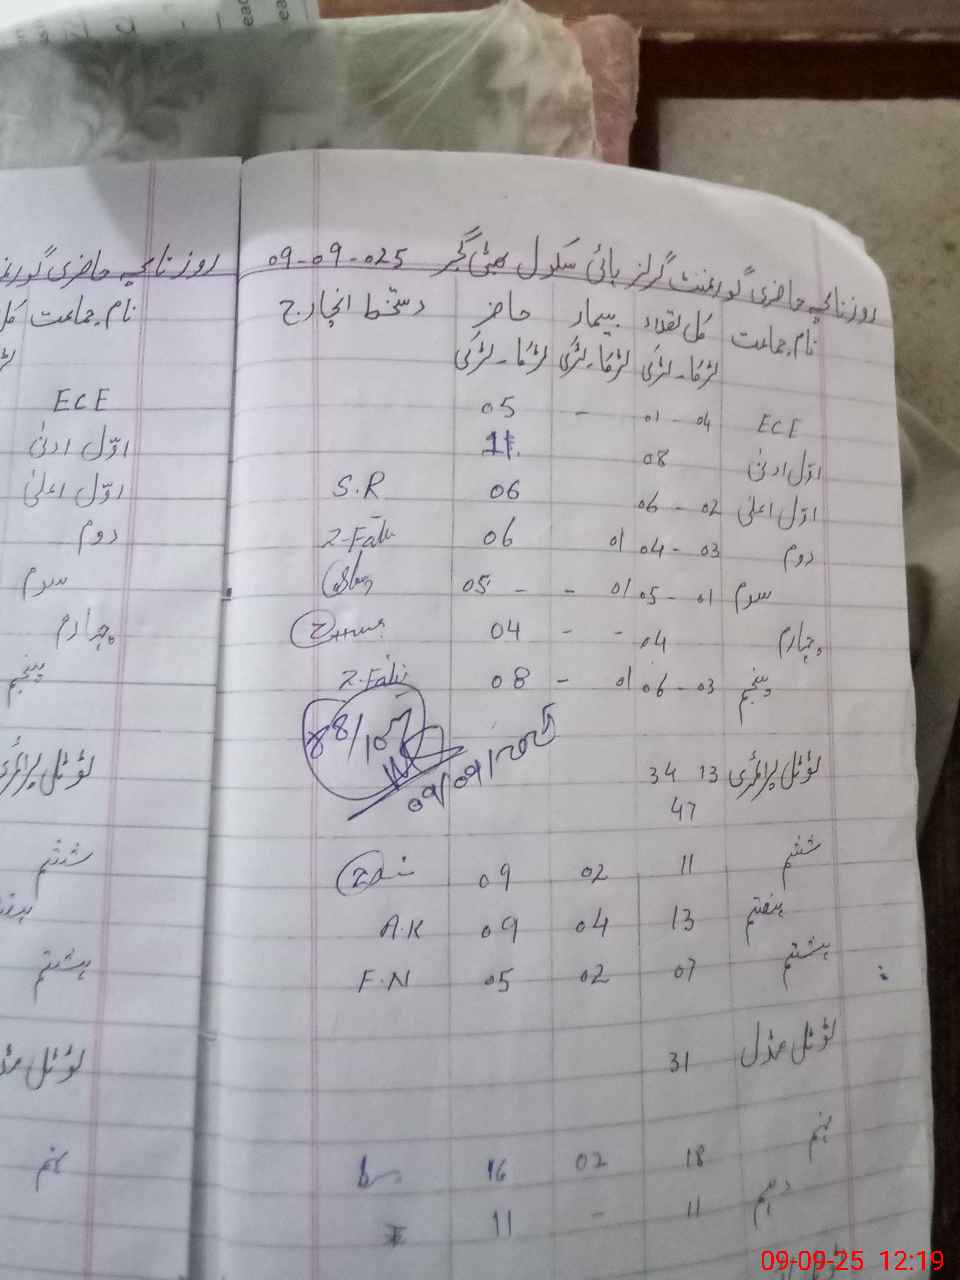 روزنامچہ حاضری گورنمنٹ گرلز ہائی سکول بھٹی گجر 09-09-025
نام جماعت کل تعداد بیمار حاضر دستخط انچارج
لڑکا - لڑکی لڑکا - لڑکی لڑکا - لڑکی
ECE 04 - 01 - 05
اوّل ادنیٰ 08 11
اوّل اعلیٰ 02 - 06 06 S.R
دوم 03 - 04 01 06
سوم 01 - 05 01 - - 05
چہارم 04 - - 04
پنجم 03 - 06 01 - 08
88/107
09/09/2025
ٹوٹل پرائمری 13 34
47
ششم 11 02 09
ہفتم 13 04 09 A.K
ہشتم 07 02 05 F.N
ٹوٹل مڈل 31
نہم 18 02 16
دہم 11 - 11
روزنامچہ حاضری گورنمنٹ
نام جماعت
ECE
اوّل ادنیٰ
اوّل اعلیٰ
دوم
سوم
چہارم
پنجم
ٹوٹل پرائمری
ششم
ہشتم
ٹوٹل
نہم
09-09-25 12:19